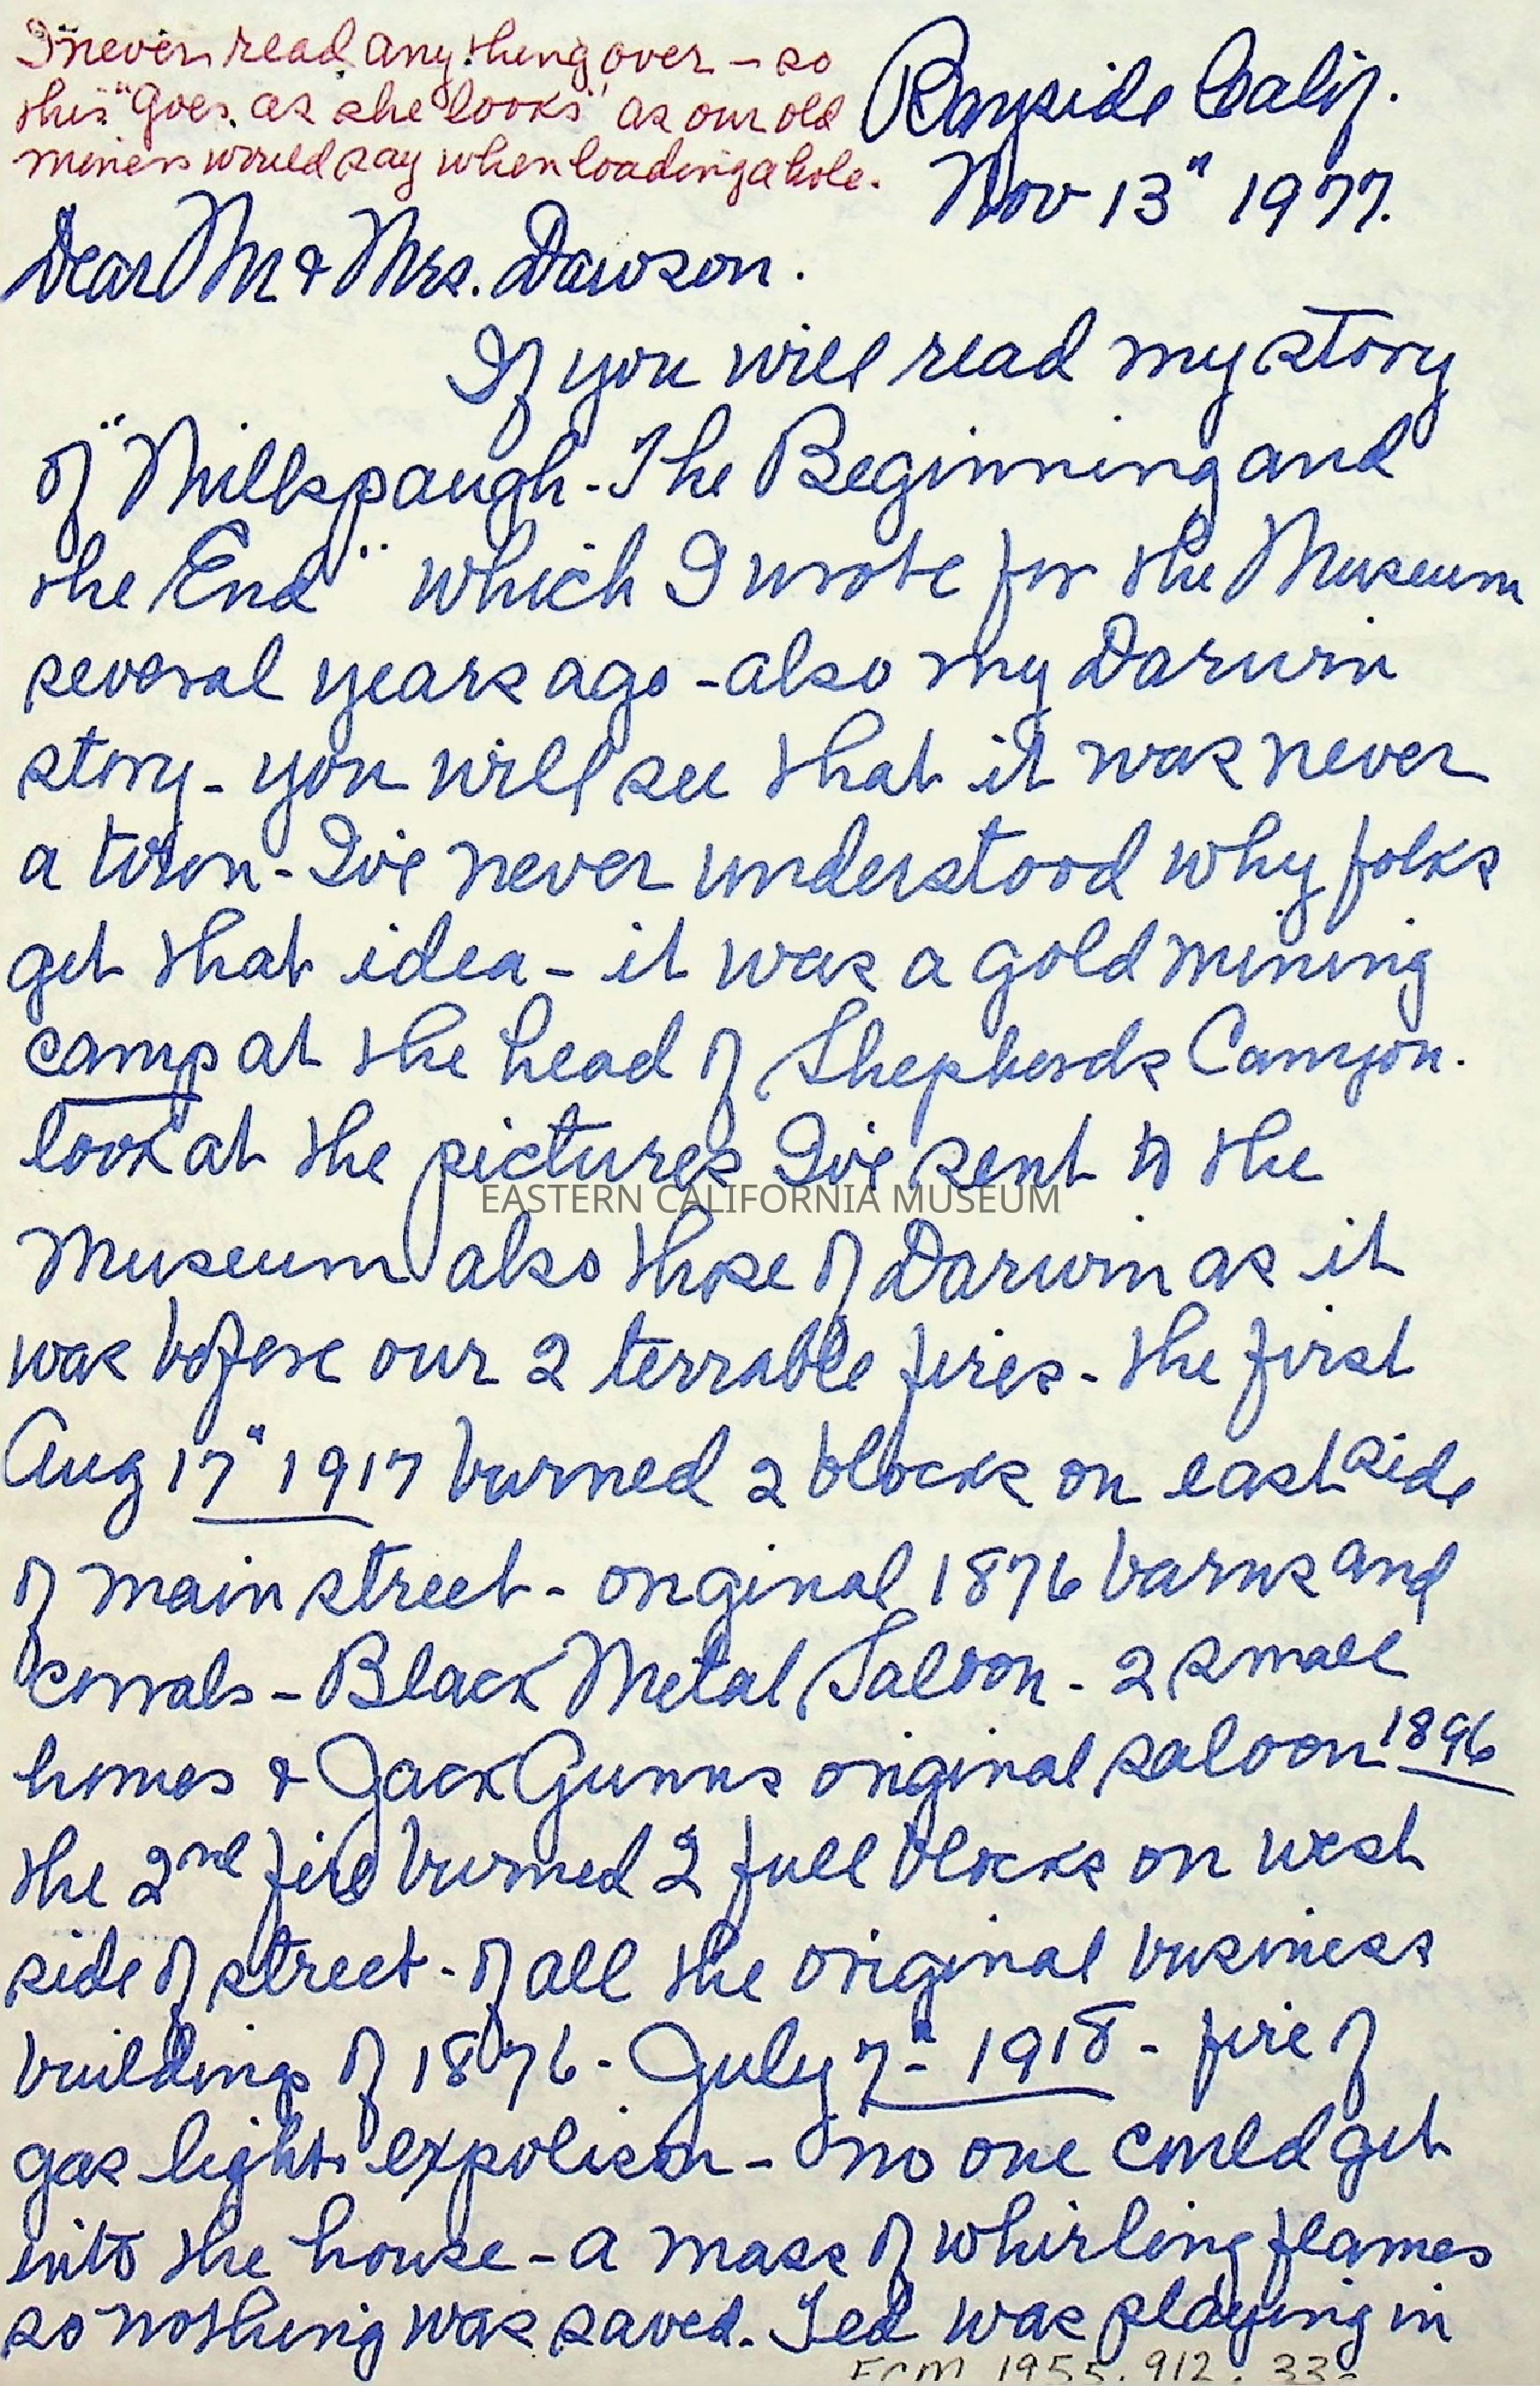 I never read anything over - so
this "Goes as she looks" as our old
miners would say when loading a hole.
Bayside Calif.
Nov 13" 1977.
Dear Mr & Mrs. Dawson.
If you will read my story
of "Millspaugh - The Beginning and
the End" which I wrote for the Museum
several years ago - also my Darwin
story - you will see that it was never
a town - I've never understood why folks
get that idea - it was a gold mining
camp at the head of Shepherds Canyon.
look at the pictures I've sent to the
EASTERN CALIFORNIA MUSEUM
Museum also those of Darwin as it
was before our 2 terrable fires - the first
Aug 17" 1917 burned 2 blocks on east side
of main street - original 1876 barns and
corrals - Black Metal Saloon - 2 small
homes & Jack Gunns original saloon 1896
the 2nd fire burned 2 full blocks on west
side of street - of all the original business
buildings of 1876 - July 7" 1918 - fire of
gas light expolison - no one could get
into the house - a mass of whirling flames
so nothing was saved. Ted was playing in
ECM 1955.912.33